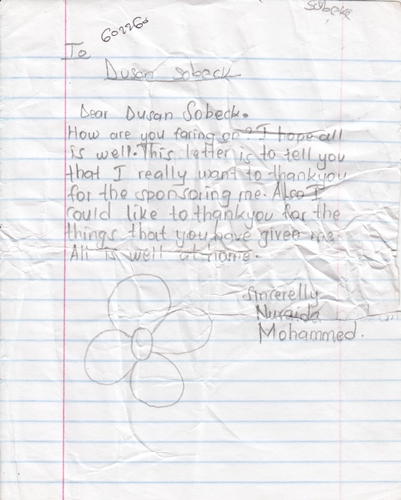 Sobeck
602260
To
Dusan Sobeck
Dear Dusan Sobeck.
How are you faring on? I hope all
is well. This letter is to tell you
that I really want to thankyou
for the sponsoring me. Also I
could like to thankyou for the
things that you have givee me.
All is well at home.
Sincerelly
Nuraida
Mohammed.